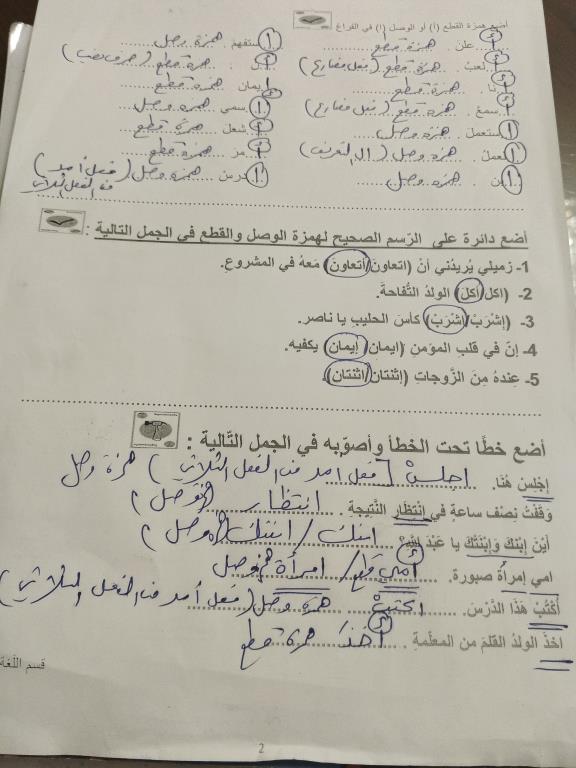 أضع همزة القطع (أ) أو الوصل (ا) في الفراغ
أ علن . همزة قطع
ا ستفهم . همزة وصل
أ لعب . همزة قطع (فعل مضارع)
أ ن . همزة قطع (حرف نصب)
أ نا . همزة قطع
إ يمان . همزة قطع
أ سمع . همزة قطع (فعل مضارع)
ا سمي . همزة وصل
ا ستعمل . همزة وصل
أ شعل . همزة قطع
ا لعمل . همزة وصل (ال التعريف)
أ مر . همزة قطع
ا بن . همزة وصل
ا درس . همزة وصل (فعل أمر من الفعل الثلاثي
أضع دائرة على الرّسم الصحيح لهمزة الوصل والقطع في الجمل التالية :
1- زميلي يُريدُني أنْ (اتعاون/أتعاون) مَعهُ في المشروعِ.
2- (اكل/أكلَ) الولدُ التُّفاحةَ.
3- (إشْرَبْ/اشْرَبْ) كأسَ الحليبِ يا ناصر.
4- إنّ في قلب المؤمنِ (ايمان/إيمان) يكفيه.
5- عِندهُ مِنَ الزَّوجاتِ (إثنتان/اثنتان).
أضع خطًا تحت الخطأ وأصوّبه في الجمل التّالية :
إجْلِسْ هُنَا. اجلسْ (فعل أمر من الفعل الثلاثي) همزة وصل
وَقَفْتُ نِصْف ساعةٍ في إنْتِظارِ النّتيجةِ . انتظار (همزة وصل)
أيْنَ إبْنكَ وَإبْنَتُكَ يا عَبْدَ الله؟ ابنك / ابنتك (همزة وصل)
امي إمرأة صبورة. أمي قطع / امرأة همزة وصل
أكْتُبْ هَذا الدَّرْسَ. اكتبْ همزة وصل (فعل أمر من الفعل الثلاثي)
اخذَ الولدُ القلمَ من المعلّمةِ . أخذَ همزة قطع
قسم اللّغة
2